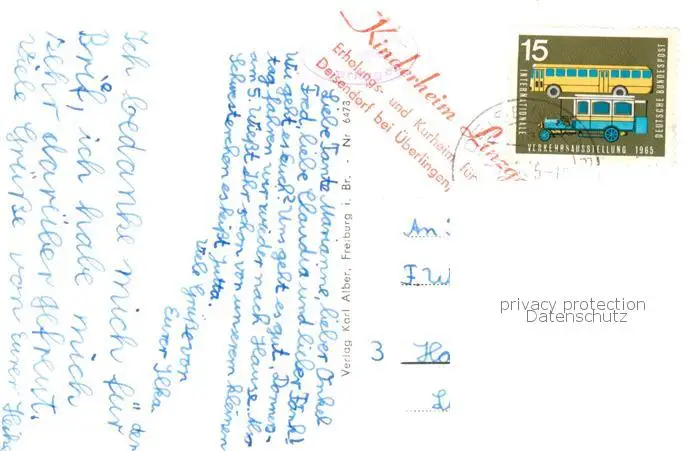 Liebe Tante Marianne, lieber Onkel
Fred, liebe Claudia und lieber Dirk!
Wie geht es euch? Uns geht es gut. Donners-
tag fahren wir wieder nach Hause. Also
am 5. Wißt Ihr schon von unserem kleinen
Schwesterchen es heißt Jutta.
Viele Grüße von
Eurer Ilka.
Ich bedanke mich für den
Brif, ich habe mich
sehr darüber gefreut.
Viele Grüße von eurer Heike
Verlag Karl Alber, Freiburg i. Br. - Nr 6473
Kinderheim Linzg
Erholungs- und Kurheim für
Deisendorf bei Überlingen,
15
INTERNATIONALE
VERKEHRSAUSSTELLUNG 1965
DEUTSCHE BUNDESPOST
An
F.W
3 Ha
privacy protection
Datenschutz